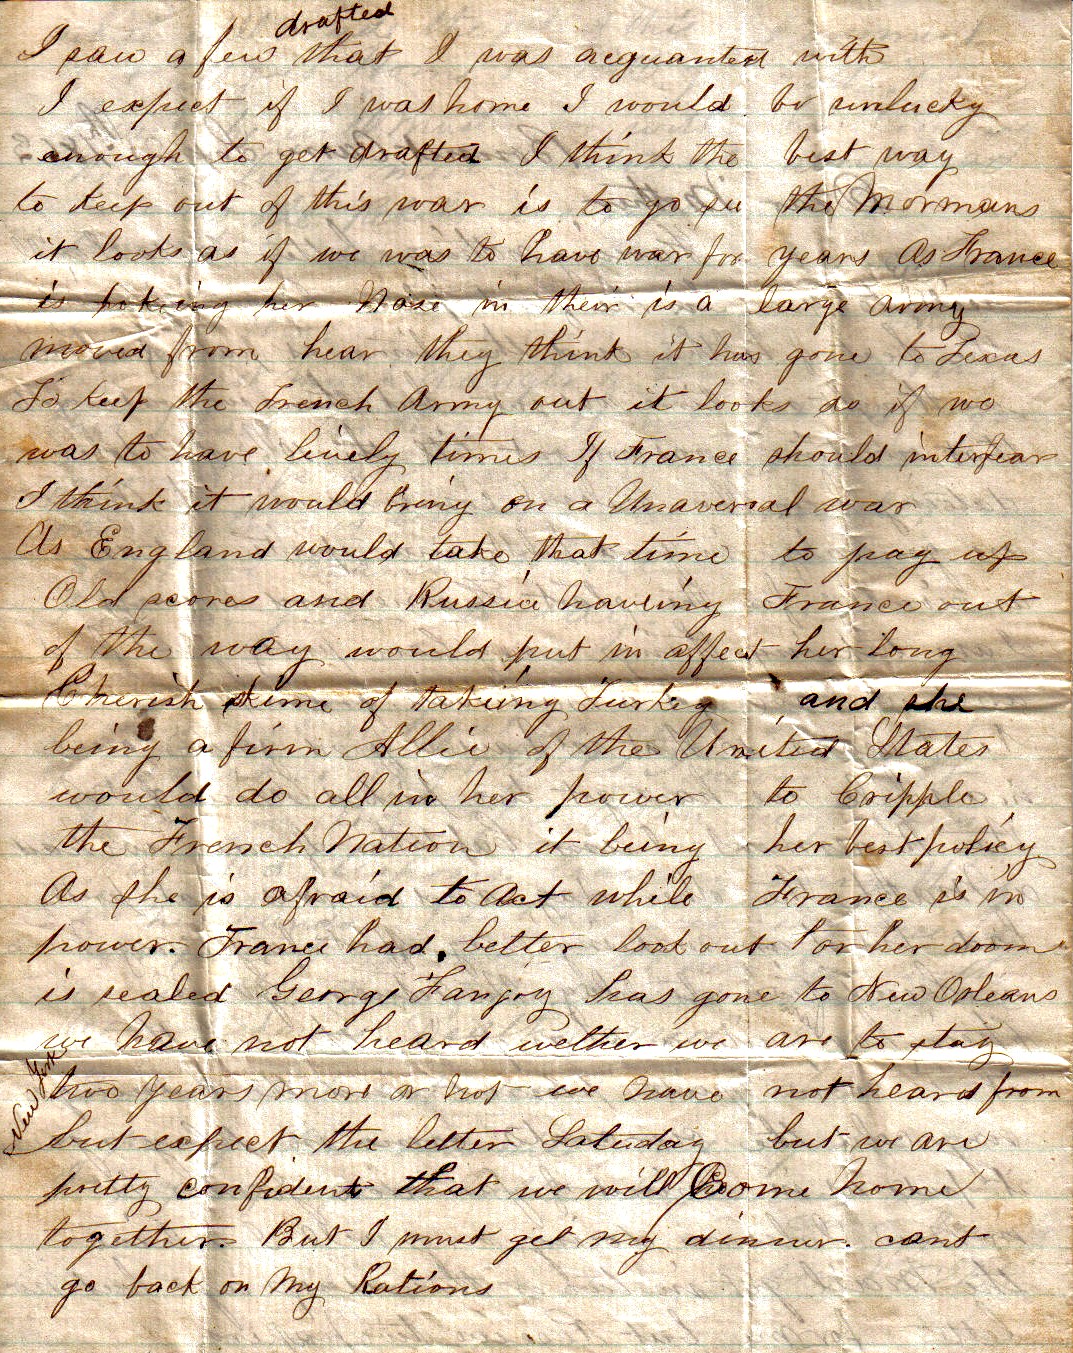 drafted
I saw a few that I was acquanted with
I expect if I was home I would be unlucky
enough to get drafted I think the best way
to keep out of this war is to go to the Mormans
it looks as if we was to have war for years As France
is poking her Nose in their is a large army
moved from hear they think it has gone to Texas
To keep the French Army out it looks as if we
was to have lively times If France should interfear
I think it would bring on a Unaversal war
As England would take that time to pay up
Old scores and Russia haveing France out
of the way would put in affect her long
Cherish skime of takeing Turkey and she
being a firm Allie of the United States
would do all in her power to Cripple
the French Nation it being her best policy
As she is afraid to Act while France is in
power. France had better look out for her doom
is sealed George Fanjoy has gone to New Orleans
we have not heard wether we are to stay
two years more or not we have not heard from
New York
but expect the letter Satuday but we are
pretty confident that we will Come home
together. But I must get my dinner. cant
go back on My Rations